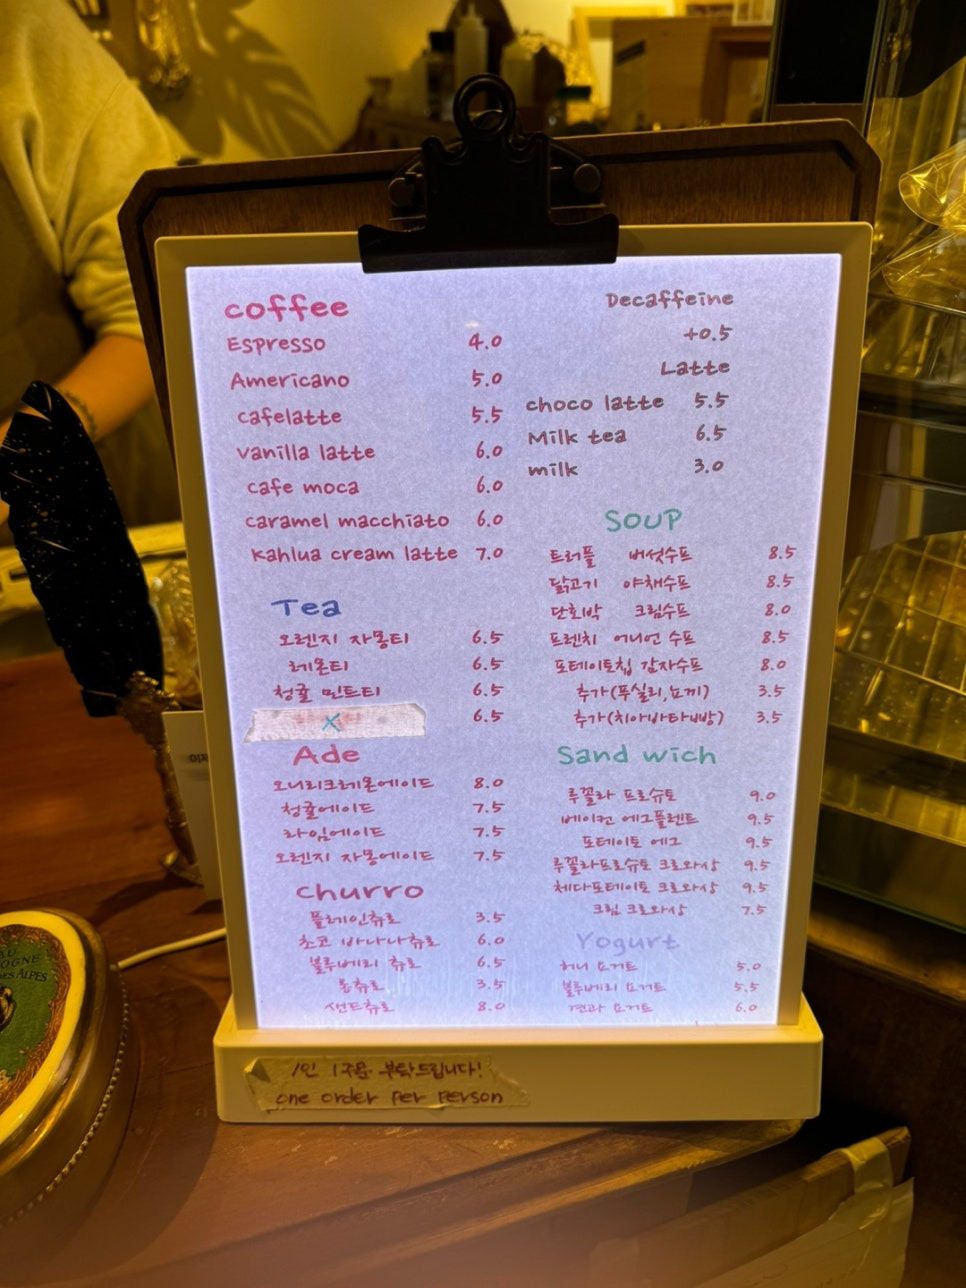 coffee
Espresso 4.0
Americano 5.0
cafelatte 5.5
vanilla latte 6.0
cafe moca 6.0
caramel macchiato 6.0
kahlua cream latte 7.0
Tea
오렌지 자몽티 6.5
레몬티 6.5
청귤 민트티 6.5
X 6.5
Ade
오니리크레몬에이드 8.0
청귤에이드 7.5
라임에이드 7.5
오렌지 자몽에이드 7.5
churro
플레인츄로 3.5
초코 바나나츄로 6.0
블루베리 츄로 6.5
퐁츄로 3.5
샌드츄로 8.0
Decaffeine
+0.5
Latte
choco latte 5.5
Milk tea 6.5
milk 3.0
SOUP
트러플 버섯수프 8.5
닭고기 야채수프 8.5
단호박 크림수프 8.0
프렌치 어니언 수프 8.5
포테이토칩 감자수프 8.0
추가(푸실리,뇨끼) 3.5
추가(치아바타빵) 3.5
Sand wich
루꼴라 프로슈토 9.0
베이컨 에그플랜트 9.5
포테이토 에그 9.5
루꼴라프로슈토 크로와상 9.5
체다포테이토 크로와상 9.5
크림 크로와상 7.5
Yogurt
허니 요거트 5.0
블루베리 요거트 5.5
견과 요거트 6.0
1인 1주문 부탁드립니다!
one order per person
DES ALPES